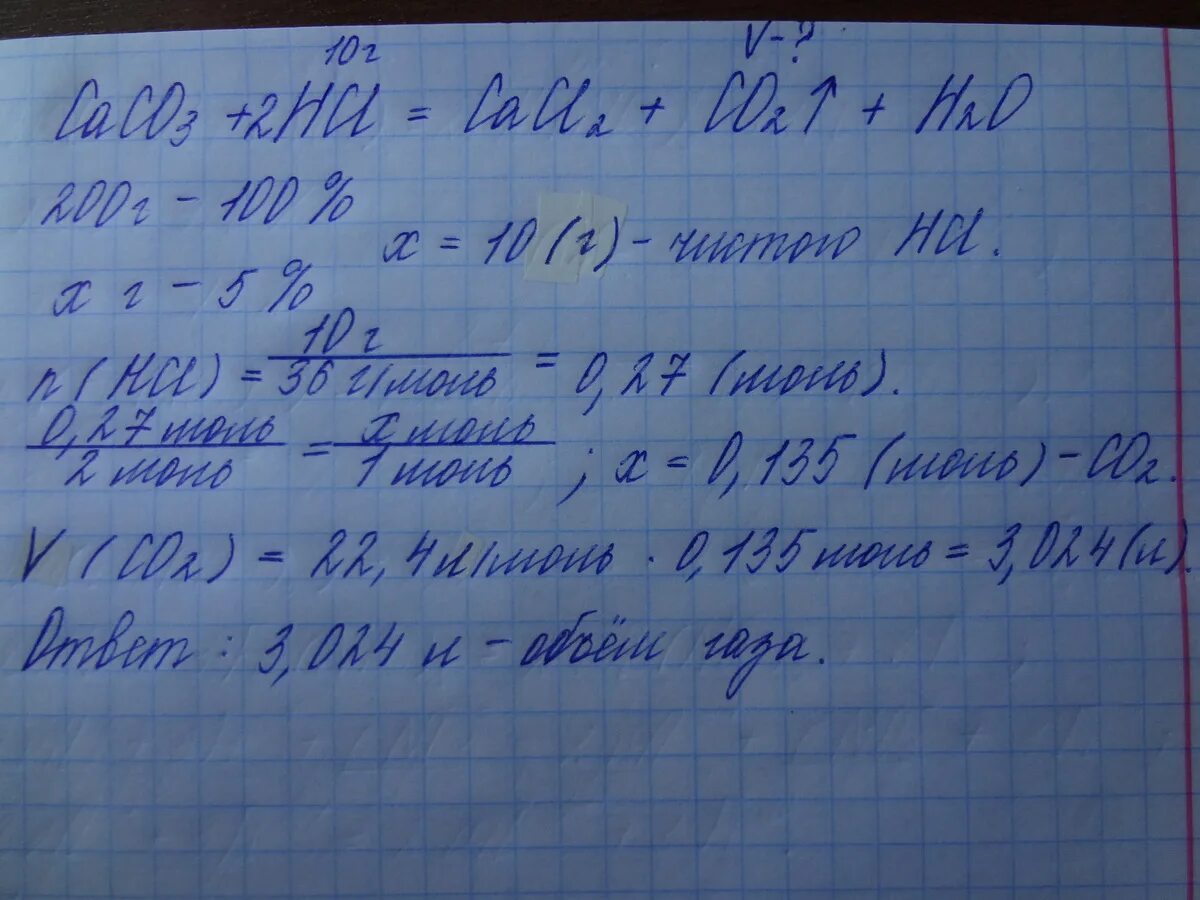 10г V-?
CaCO₃ + 2HCl = CaCl₂ + CO₂↑ + H₂O
200г - 100 %
x = 10 (г) - чистого HCl.
x г - 5 %
n (HCl) = 10 г / 36 г/моль = 0,27 (моль).
0,27 моль / 2 моль = x моль / 1 моль ; x = 0,135 (моль) - CO₂.
V (CO₂) = 22,4 л/моль · 0,135 моль = 3,024 (л).
Ответ : 3,024 л - объём газа.